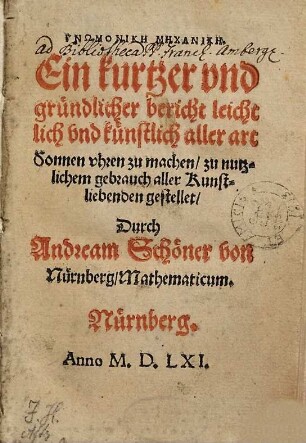 ΓΝΩΜΟΝΙΚΗ ΜΗΧΑΝΙΚΗ.
ad Bibliotheca PP. Franc. Amberg.
Ein kurtzer vnd
gründlicher bericht leicht
lich vnd künstlich aller art
Sonnen vhren zu machen/ zu nutz-
lichem gebrauch aller Kunst-
liebenden gestellet/
Durch
Andream Schöner von
Nürnberg/Mathematicum.
Nürnberg.
Anno M. D. LXI.